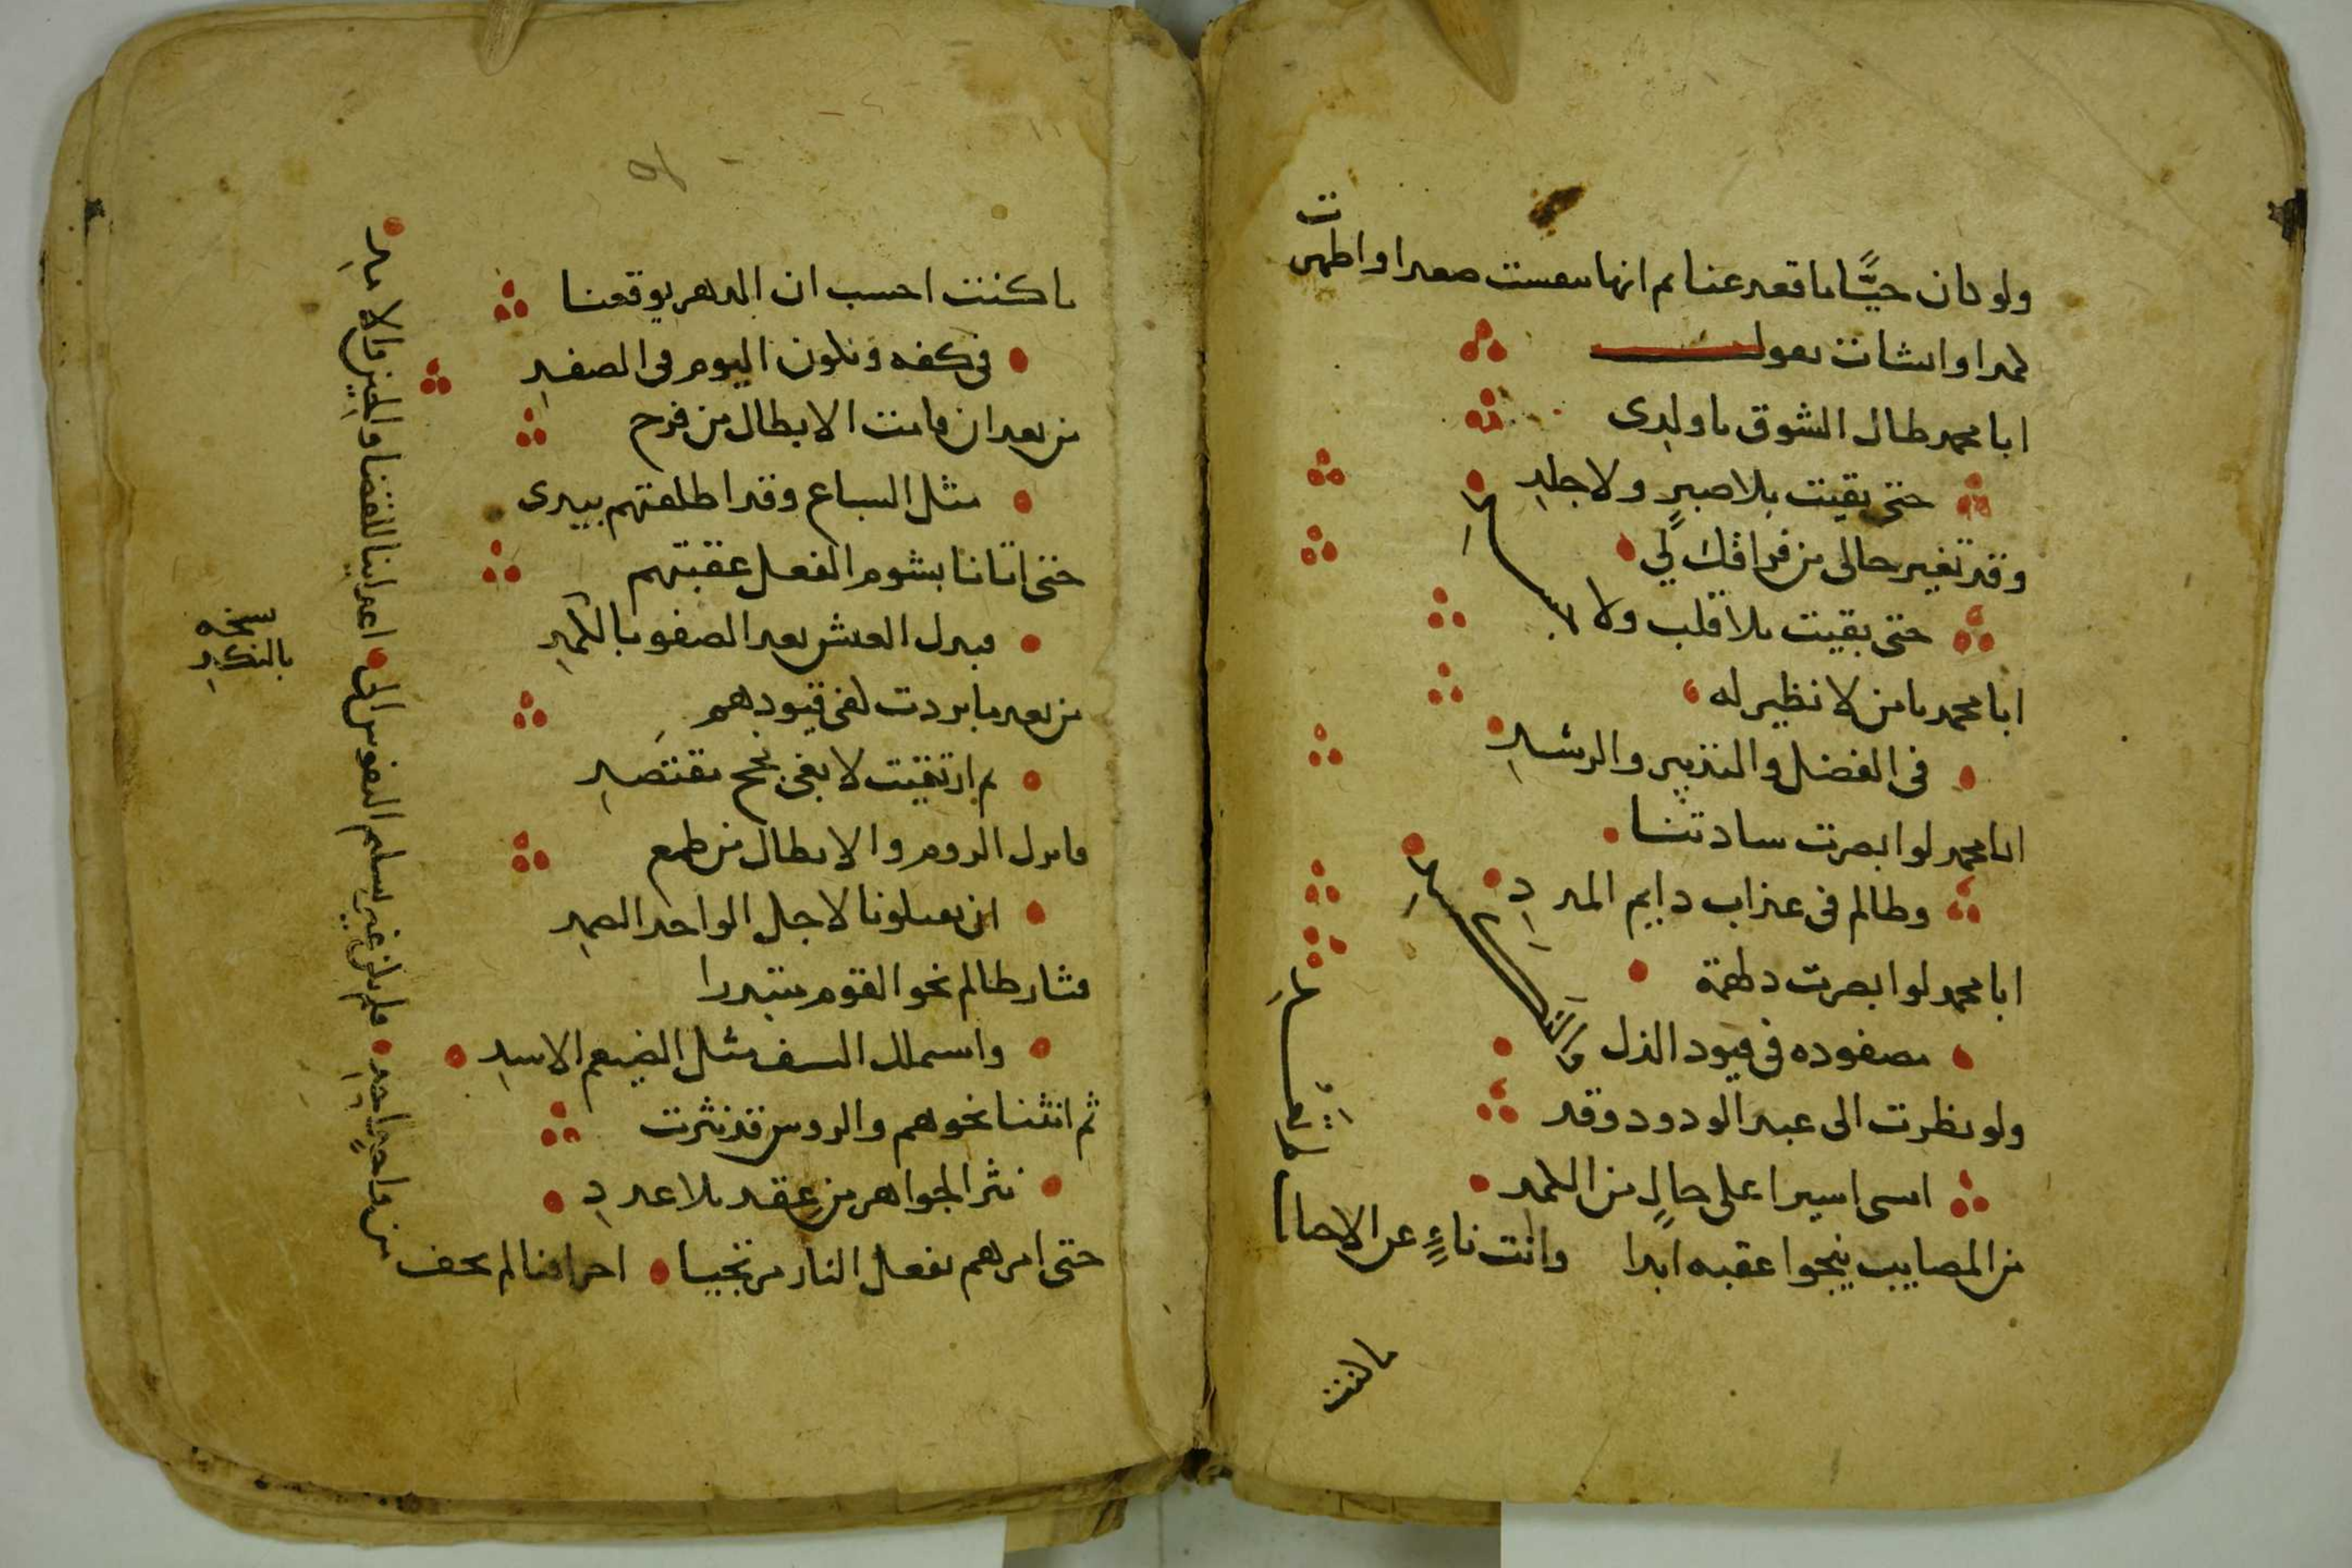 ولو كان حيًّا ما قعد عنا ثم انها تنفست صعدا واظهرت
كمدا وانشات تقول
ابا محمد طال الشوق يا ولدي
حتى بقيت بلا صبرٍ ولا جلدِ
وقد تغير حالي من فراقك لي
حتى بقيت بلا قلب ولا كبدِ
ابا محمد يا من لا نظير له
في الفضل والتدبير والرشدِ
ابا محمد لو ابصرت سادتنا
وظالم في عذاب دايم المددِ
ابا محمد لو ابصرت دلهمة
مصفوده في قيود الذل والنكدِ
ولو نظرت الى عبد الودود وقد
امسى اسيرا على حالٍ من الكمد
من المصايب ينجوا عقبه ابدا وانت ناءٍ عن الاحباب
ما كنت
ما كنت احسب ان الدهر يوقعنا
في كفه ونكون اليوم في الصفدِ
من بعد ان فاتت الابطال من فرح
مثل السباع وقد اطلقتهم بيدي
حتى اتانا بشوم الفعل عقبتهم
فبدل العيش بعد الصفو بالكمدِ
من بعد ما بردت كفي قيودهم
ثم ارتقيت لابغي نجح مقتصدِ
فابدل الروم والابطال من طمع
ان يقتلونا لاجل الواحد الصمدِ
فثار ظالم نحو القوم مبتدرا
واستملك السيف مثل الضيغم الاسدِ
ثم انثنا نحوهم والروس قد نثرت
نثر الجواهر من عقد بلا عددِ
حتى امرهم بفعل النار مرتجيا احراقنا لم يخف
من واحدٍ احدِ فلم يكن غير تسليم النفوس الى اعداينا للقضا والحين والامدِ
نسخه
بالنكدِ